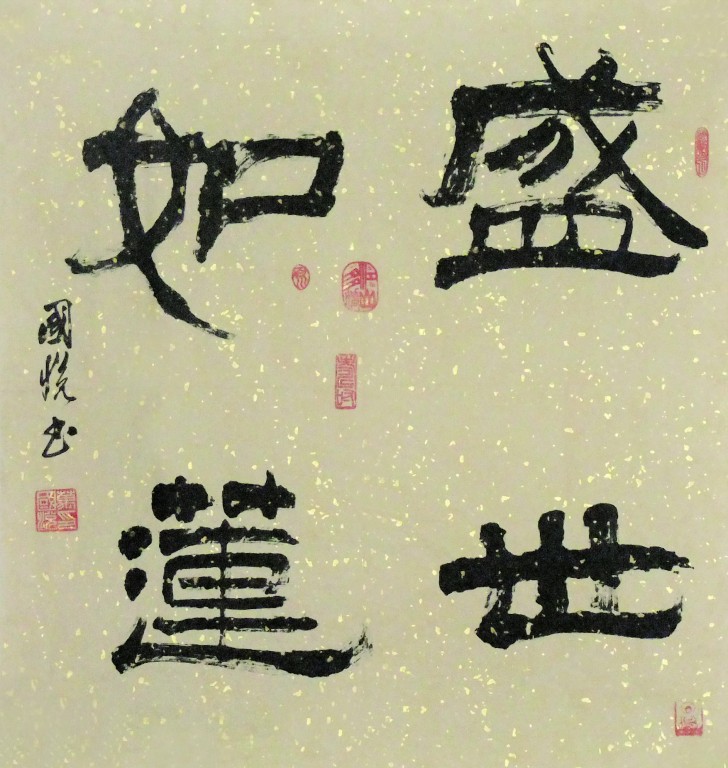 盛世
如蓮
國悦书